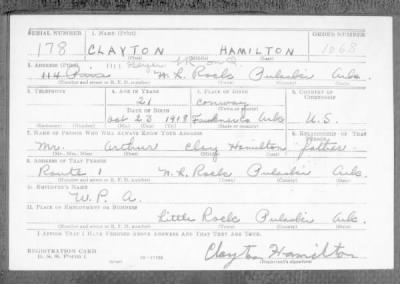 SERIAL NUMBER 1. NAME (Print) ORDER NUMBER
178 CLAYTON HAMILTON 1068
(First) (Middle) (Last)
2. ADDRESS (Print)
114 N. R. Rock Pulaski Ark.
(Number and street or R. F. D. number) (Town) (County) (State)
3. TELEPHONE 4. AGE IN YEARS 5. PLACE OF BIRTH 6. COUNTRY OF CITIZENSHIP
21 Conway
DATE OF BIRTH (Town or county)
Oct 23 1918 Faulkner Co Ark U.S.
(Mo.) (Day) (Yr.) (State or country)
7. NAME OF PERSON WHO WILL ALWAYS KNOW YOUR ADDRESS 8. RELATIONSHIP OF THAT PERSON
Mr. Arthur Clay Hamilton Father
(Mr., Mrs., Miss) (First) (Middle) (Last)
9. ADDRESS OF THAT PERSON
Route 1 N. R. Rock Pulaski Ark.
(Number and street or R. F. D. number) (Town) (County) (State)
10. EMPLOYER'S NAME
W. P. A.
11. PLACE OF EMPLOYMENT OR BUSINESS
Little Rock Pulaski Ark.
(Number and street or R. F. D. number) (Town) (County) (State)
I AFFIRM THAT I HAVE VERIFIED ABOVE ANSWERS AND THAT THEY ARE TRUE.
REGISTRATION CARD Clayton Hamilton
D. S. S. FORM 1 (Registrant's signature)